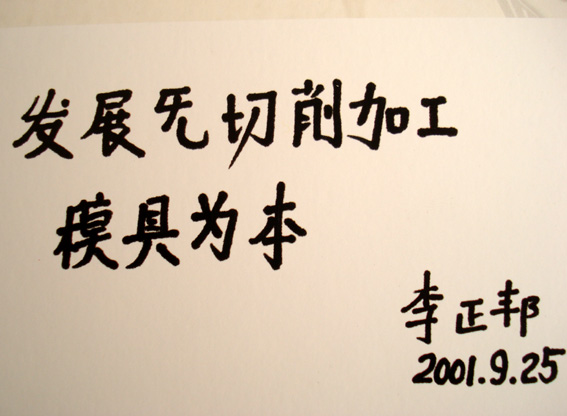 发展无切削加工
模具为本
李正邦
2001.9.25